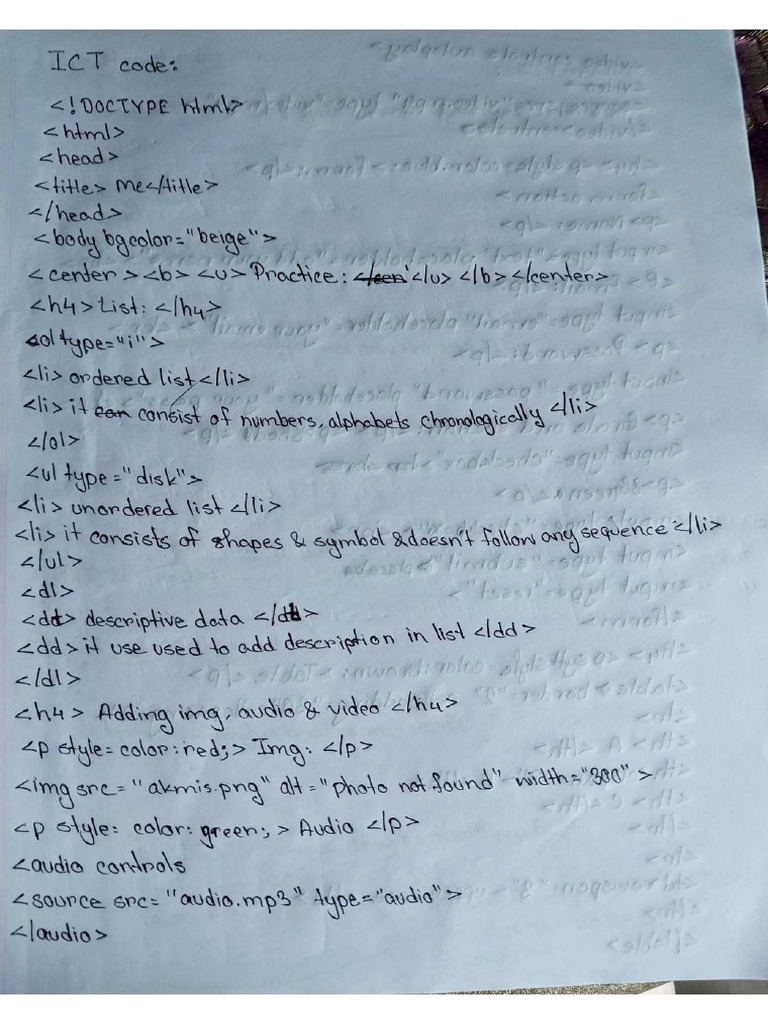 ICT code:
<!DOCTYPE html>
<html>
<head>
<title> me</title>
</head>
<body bgcolor="beige">
<center><b><u>Practice: </u></b></center>
<h4>List: </h4>
<ol type="i">
<li> ordered list</li>
<li> it consist of numbers, alphabets chronologically </li>
</ol>
<ul type="disk">
<li> unordered list </li>
<li> it consists of shapes & symbol & doesn't follow any sequence </li>
</ul>
<dl>
<dt> descriptive data </dt>
<dd> it use used to add description in list </dd>
</dl>
<h4> Adding img, audio & video </h4>
<p style= color:red;> Img: </p>
<img src="akmis.png" alt="photo not found" width="300">
<p style: color: green;> Audio </p>
<audio controls
<source src="audio.mp3" type="audio">
</audio>